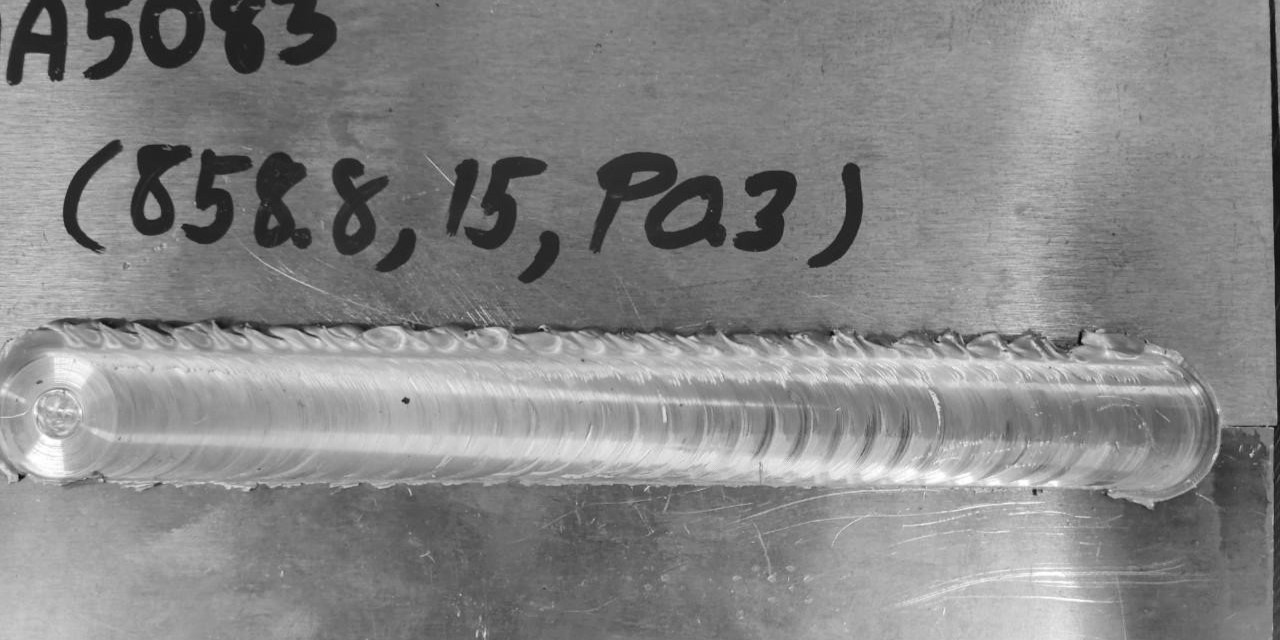 AA5083
(858.8, 15, P0.3)